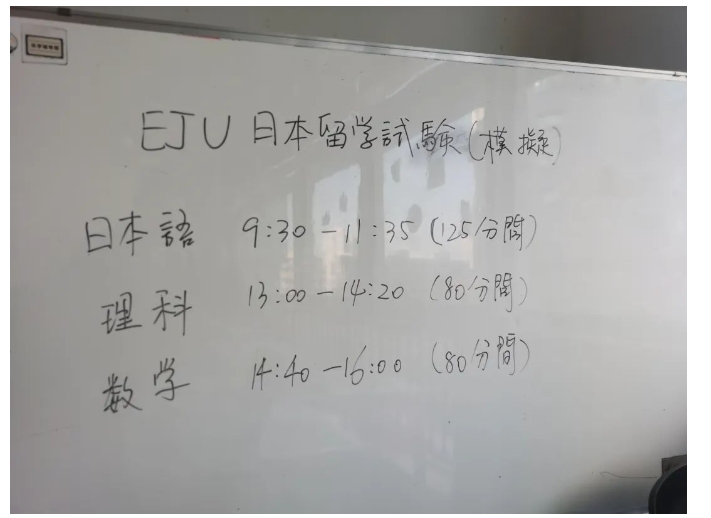 EJU 日本留学試験(模擬)
日本語 9:30-11:35 (125分間)
理科 13:00-14:20 (80分間)
数学 14:40-16:00 (80分間)